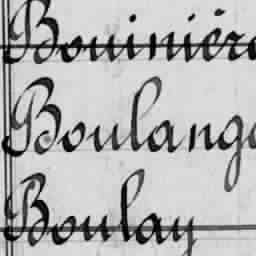 Bouinière
Boulange
Boulay